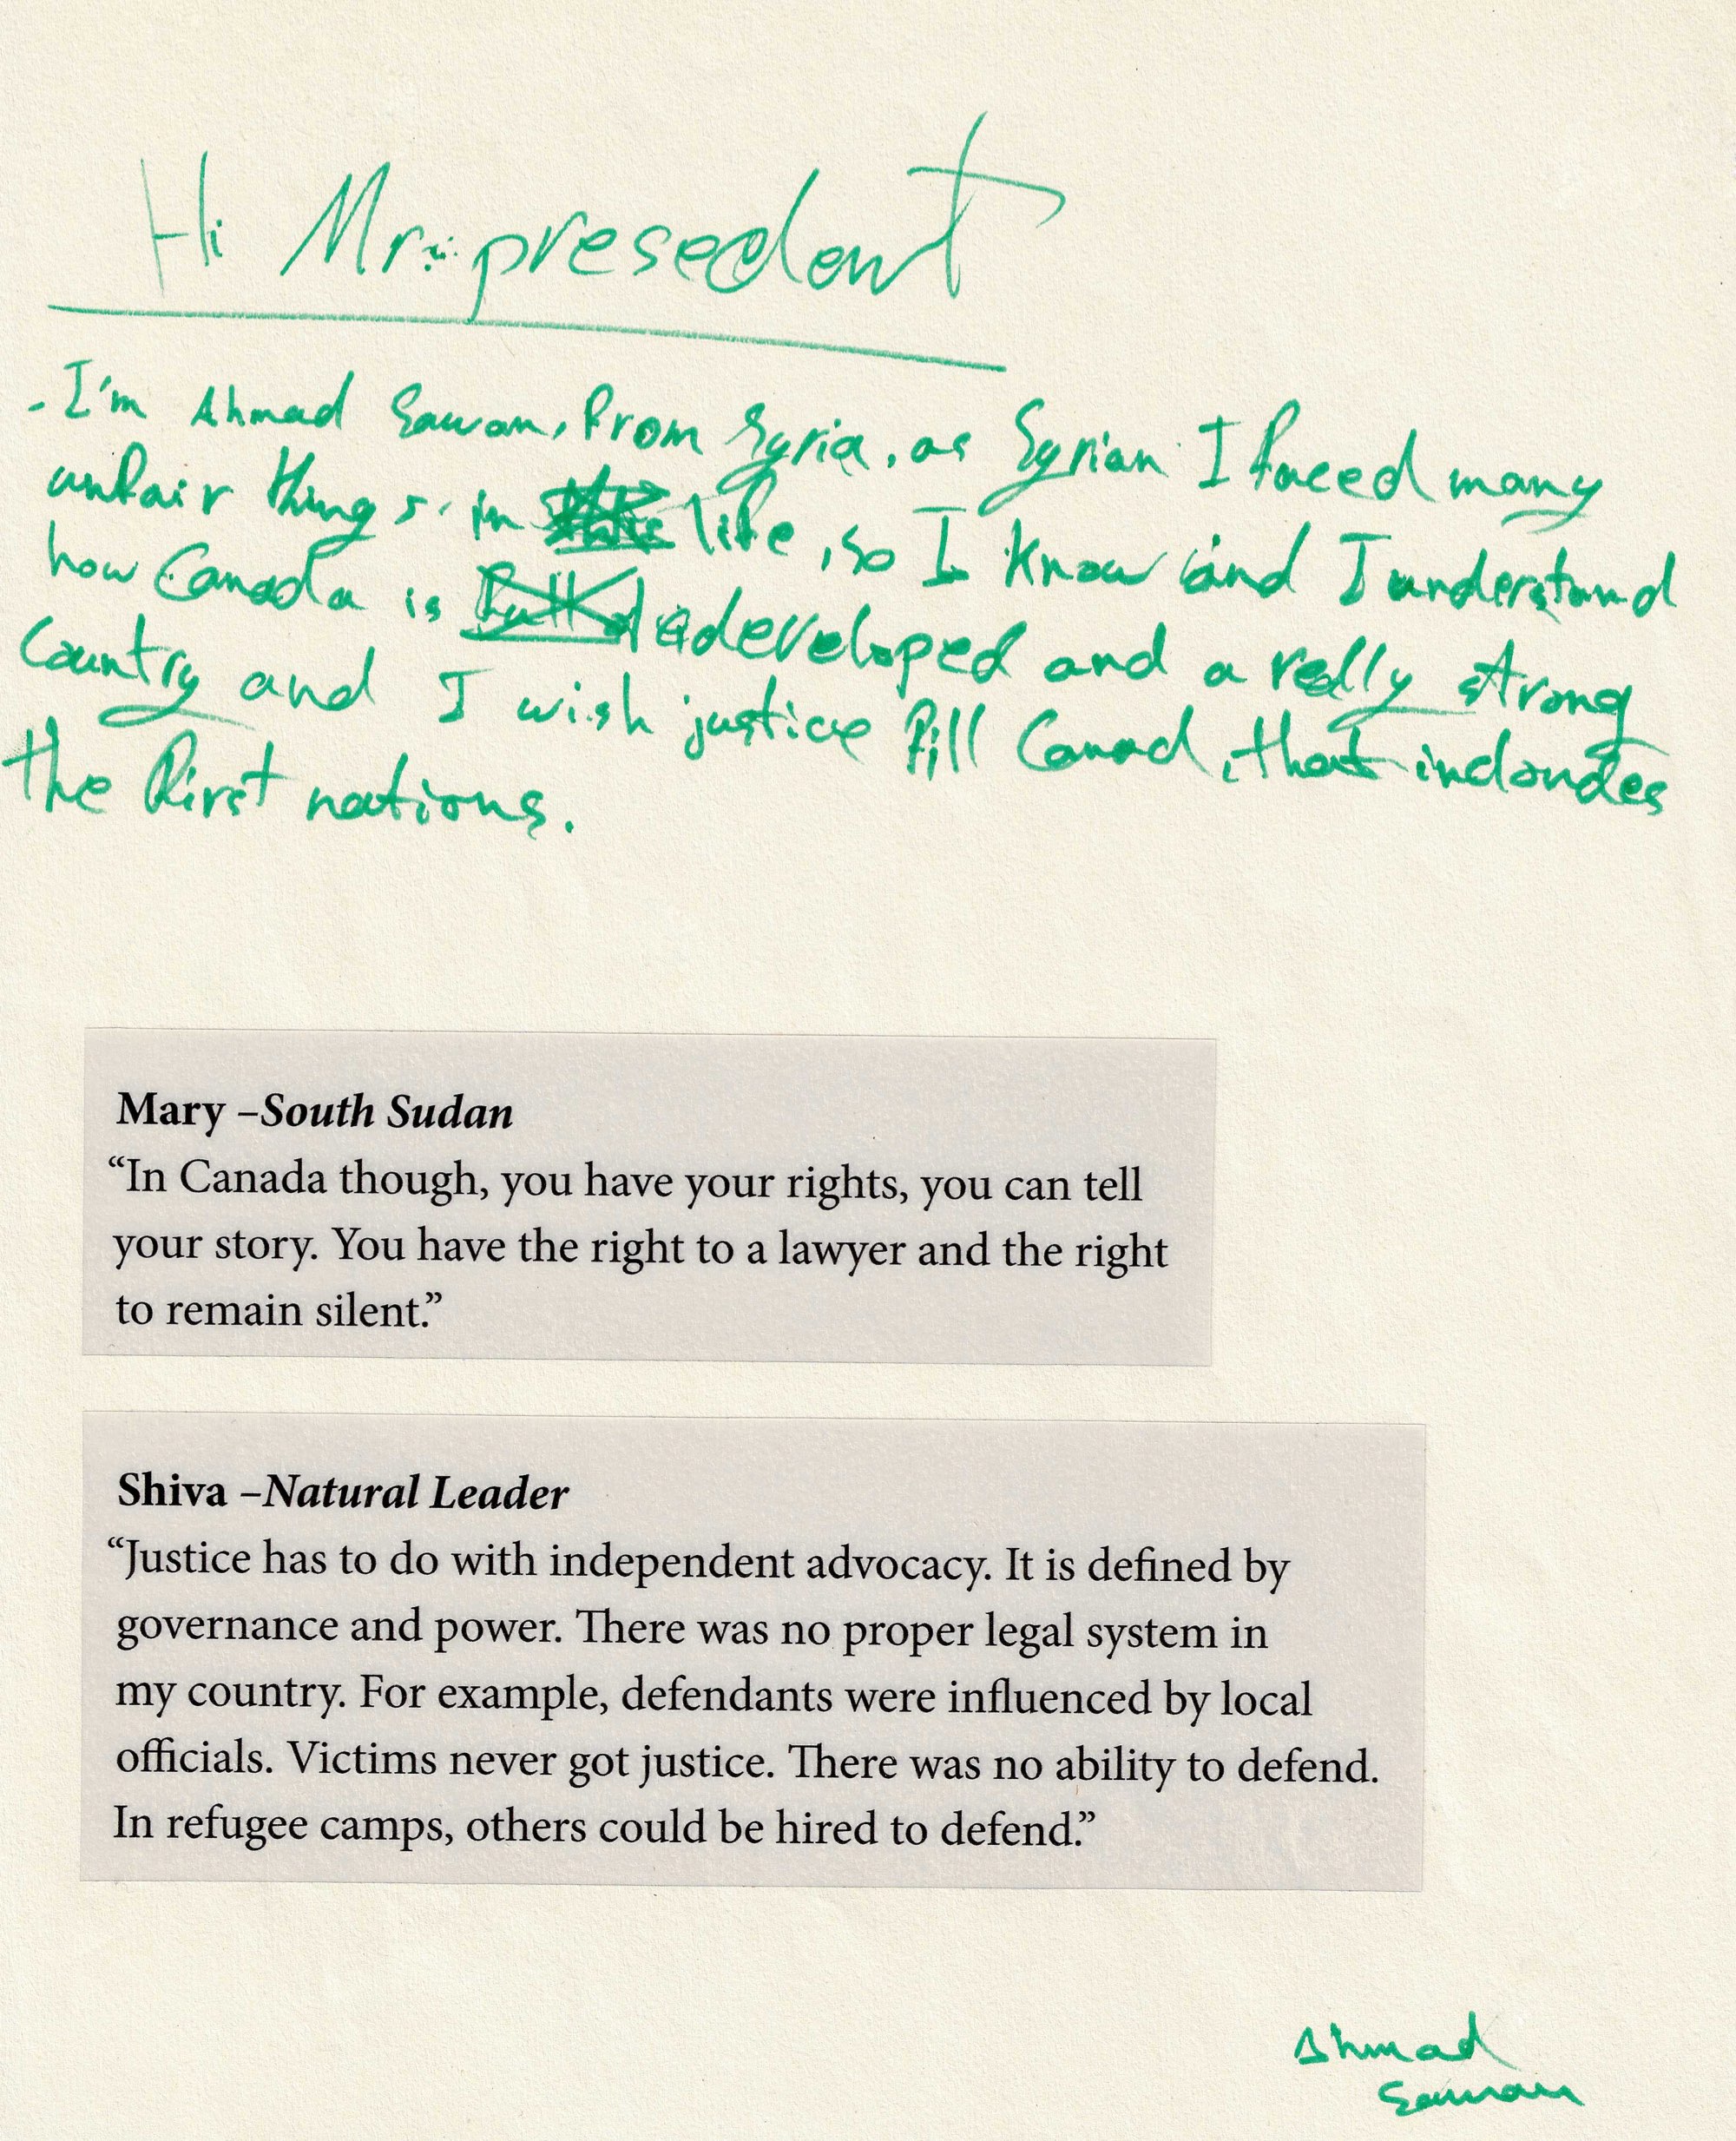 Hi Mr. presedent
- I'm Ahmad Sawan, from Syria, as Syrian I faced many
unfair things in life, so I know and I understand
how Canada is developed and a really strong
Country and I wish justice fill Canad, that includes
the first nations.
Mary –South Sudan
“In Canada though, you have your rights, you can tell
your story. You have the right to a lawyer and the right
to remain silent.”
Shiva –Natural Leader
“Justice has to do with independent advocacy. It is defined by
governance and power. There was no proper legal system in
my country. For example, defendants were influenced by local
officials. Victims never got justice. There was no ability to defend.
In refugee camps, others could be hired to defend.”
Ahmad
Sawan